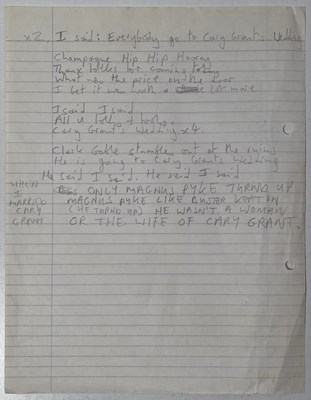 x2. I said: Everybody go to Cary Grant's Wedding
Champagne Hip Hip Hooray
Thanx folks for coming today
What was the price on the door
I bet it was worth a lot more
I said I said
All u lads & ladys.
Cary Grant's Wedding x4
Clark Gable stumbles out of the ruins
He is going to Cary Grant's Wedding
He said I said. He said I said
WHEN I MARRIED CARY GRANT
ONLY MAGNUS PYKE TURND UP
MAGNUS PYKE LIKE BUSTER KEATON
(HE TURND UP) HE WASN'T A WOMAN
OR THE WIFE OF CARY GRANT.